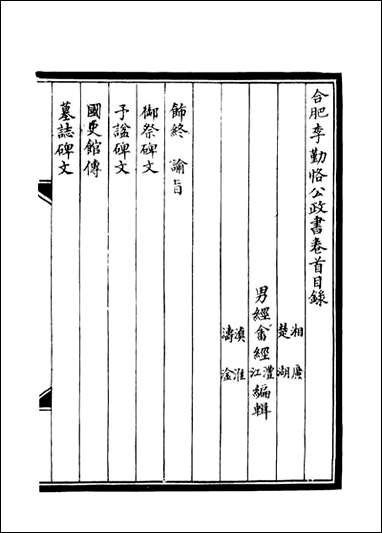 合肥李勤恪公政書卷首目錄
湘 廣
楚 湖
男經畬經澧江編輯
滇 淮
濤 淦
飾終 諭旨
御祭碑文
予諡碑文
國史館傳
墓誌碑文